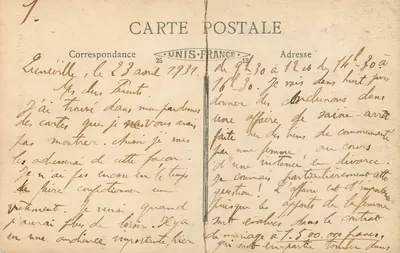 1.
CARTE POSTALE
Correspondance
25 UNIS-FRANCE 12
Adresse
Lunéville, le 23 avril 1931.
Mes chers Parents
J'ai trouvé dans ma
des cartes que je ne vous avais
pas montrer. Ainsi je
les de cette façon.
Je n'ai pas encore eu le temps
de faire confectionner un
vêtement. Je verrai quand
j'aurai plus de loisir. Il y a
eu une audience importante, hier
de 9h30 à 12 et de 14h30 à
16h30. Je vais dans huit jours
donner des conclusions dans
une affaire de saisie-arrêt
faite sur des biens de communauté
par une femme au cours
d'une instance en divorce.
Je connais particulièrement cette
question ! L'affaire est d'importance
puisque les apports de la femme
sont évalués dans le contrat
de mariage à 1.500.000 francs,
qui sont en partie tombés dans